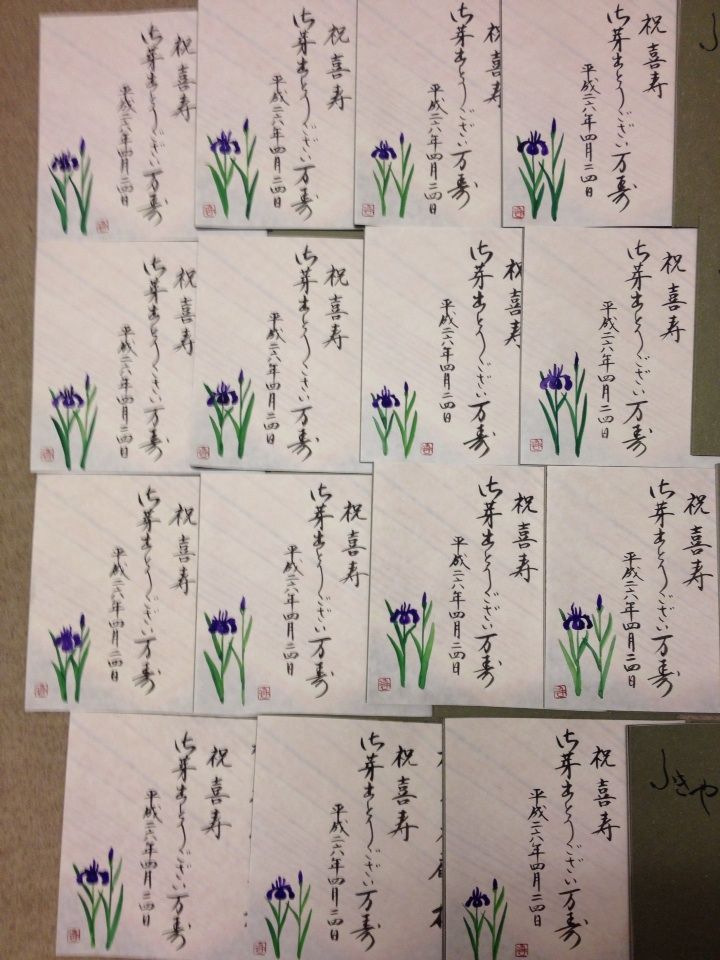 祝喜寿
御芽出とうござい万寿
平成二六年四月二四日
祝喜寿
御芽出とうござい万寿
平成二六年四月二四日
祝喜寿
御芽出とうござい万寿
平成二六年四月二四日
祝喜寿
御芽出とうござい万寿
平成二六年四月二四日
祝喜寿
御芽出とうござい万寿
平成二六年四月二四日
祝喜寿
御芽出とうござい万寿
平成二六年四月二四日
祝喜寿
御芽出とうござい万寿
平成二六年四月二四日
祝喜寿
御芽出とうござい万寿
平成二六年四月二四日
祝喜寿
御芽出とうござい万寿
平成二六年四月二四日
祝喜寿
御芽出とうござい万寿
平成二六年四月二四日
祝喜寿
御芽出とうござい万寿
平成二六年四月二四日
祝喜寿
御芽出とうござい万寿
平成二六年四月二四日
祝喜寿
御芽出とうござい万寿
平成二六年四月二四日
祝喜寿
御芽出とうござい万寿
平成二六年四月二四日
祝喜寿
御芽出とうござい万寿
平成二六年四月二四日